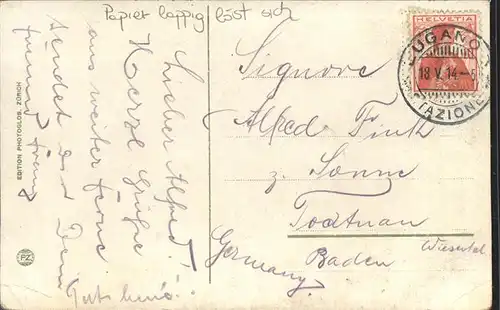 Papier lappig löst sich
Lieber Alfred!
Herzl Grüße
aus weiter Ferne
sendet dir Dein
Freund Franz
Gut
Signore
Alfred Fink
z. Sonne
Todtnau
Wiesental
Baden
Germany
HELVETIA
LUGANO
18 V. 14
STAZIONE
EDITION PHOTOGLOB, ZÜRICH
PZ